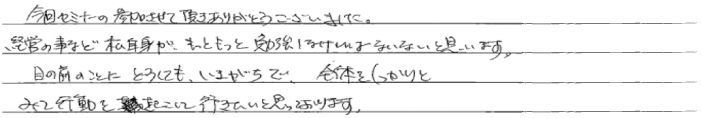 今回セミナーの参加させて頂きありがとうございました。
経営の事など私自身が、もっともっと勉強しなければいけないと思います。
目の前のことに どうしても、いきがちで、全体をしっかりと
みて行動を起こして行きたいと思っております。